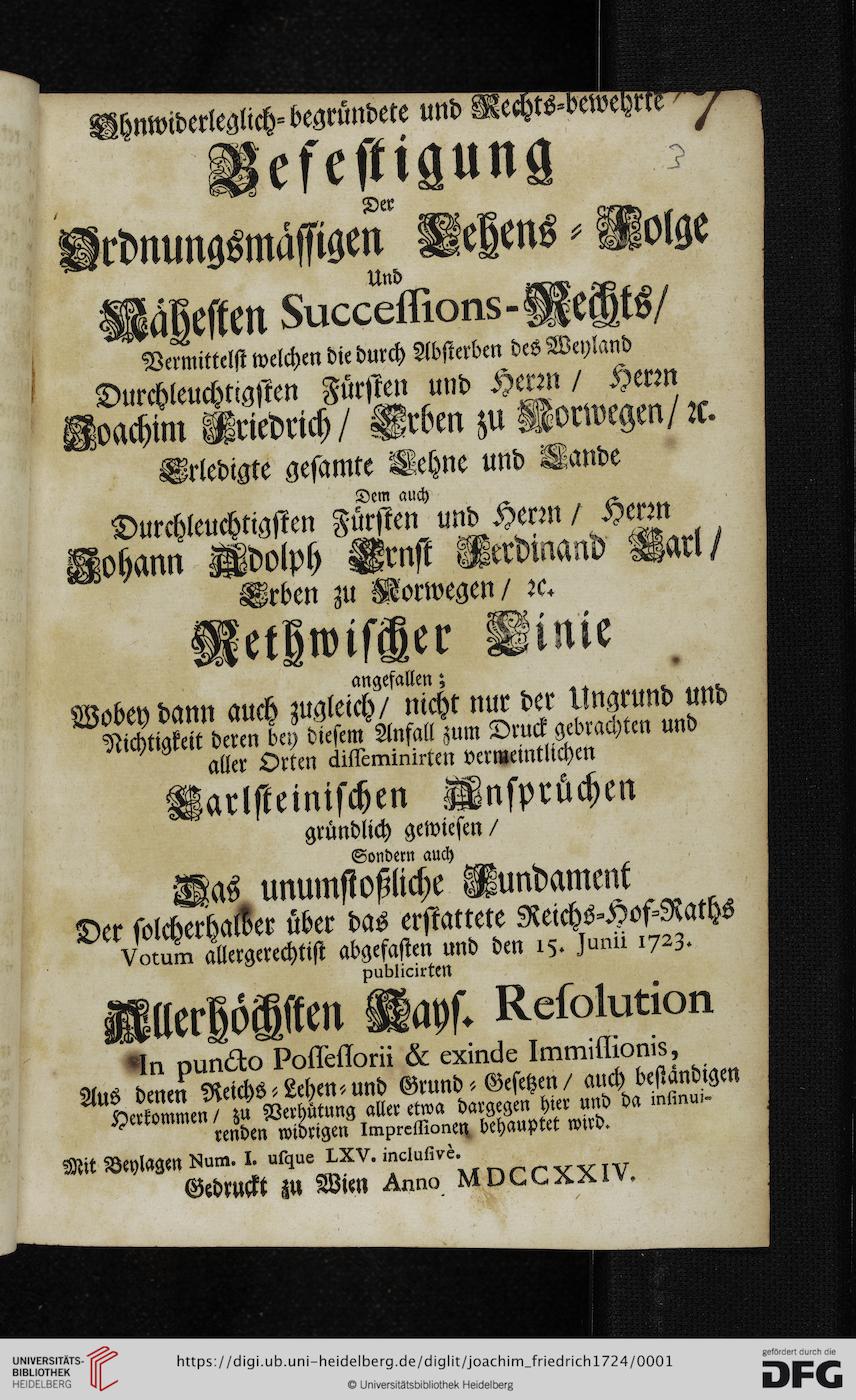 Ohnwiderleglich-begründete und Rechts-bewehrte
3
Befestigung
Der
Ordnungsmässigen Lehens-Folge
Und
Nähesten Successions-Rechts/
Vermittelst welchen die durch Absterben des Weyland
Durchleuchtigsten Fürsten und Herrn / Herrn
Joachim Friedrich / Erben zu Norwegen / ꝛc.
Erledigte gesamte Lehne und Lande
Dem auch
Durchleuchtigsten Fürsten und Herrn / Herrn
Johann Adolph Ernst Ferdinand Carl /
Erben zu Norwegen / ꝛc.
Rethwischer Linie
angefallen;
Wobey dann auch zugleich / nicht nur der Ungrund und
Nichtigkeit deren bey diesem Anfall zum Druck gebrachten und
aller Orten disseminirten vermeintlichen
Carlsteinischen Ansprüchen
gründlich gewiesen /
Sondern auch
Das unumstoßliche Fundament
Der solcherhalber über das erstattete Reichs-Hof-Raths
Votum allergerechtist abgefasten und den 15. Junii 1723.
publicirten
Allerhöchsten Kays. Resolution
In puncto Possessorii & exinde Immissionis,
Aus denen Reichs-Lehen-und Grund-Gesetzen / auch beständigen
Herkommen / zu Verhütung aller etwa dargegen hier und da insinui-
renden widrigen Impressionen behauptet wird.
Mit Beylagen Num. I. usque LXV. inclusivè.
Gedruckt zu Wien Anno MDCCXXIV.
UNIVERSITÄTS-
BIBLIOTHEK
HEIDELBERG
https://digi.ub.uni-heidelberg.de/diglit/joachim_friedrich1724/0001
© Universitätsbibliothek Heidelberg
gefördert durch die
DFG